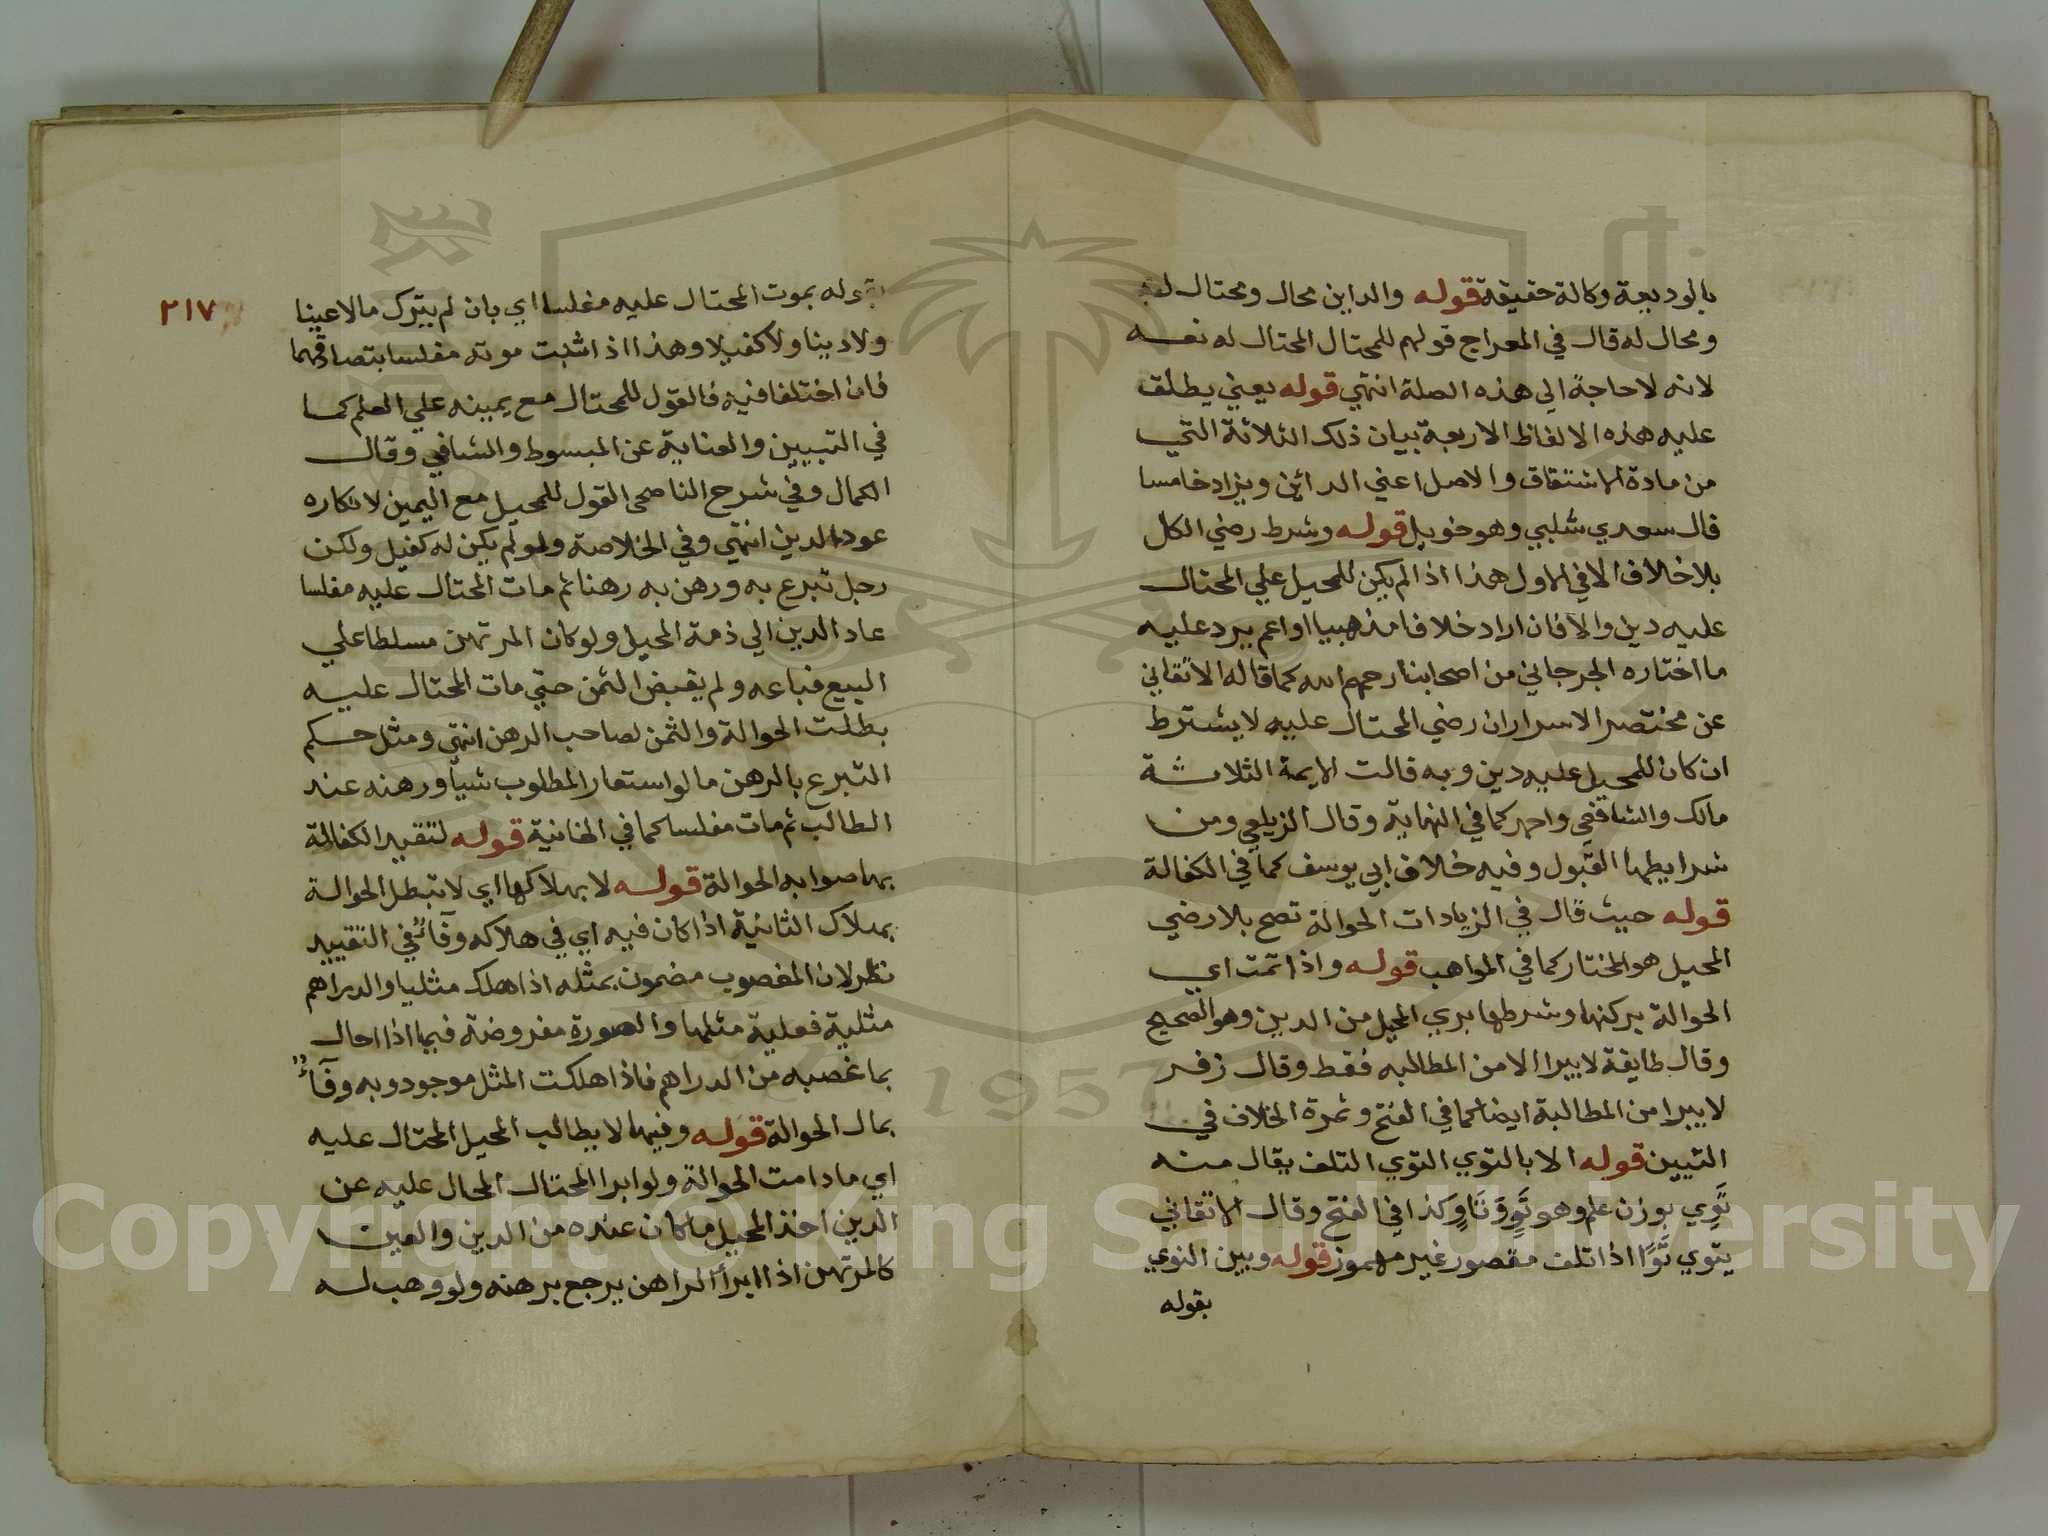 بالوديعة وكالة حقيقة قوله والداين محال ومحتال له
ومحال له قال في المعراج قولهم للمحتال المحتال له
لانه لا حاجة الى هذه الصلة انتهي قوله يعني يطلق
عليه هذه الالفاظ الاربعة بيان ذلك الثلاثة التي
من مادة الاشتقاق والاصل اعني الدائن ويزاد خامسا
قال سعدي شلبي وهو حويل قوله وشرط رضي الكل
بلا خلاف الا في الاول هذا اذا لم يكن للمحيل علي المحتال
عليه دين والا فان اراد خلافا مذهبيا او اعم يرد عليه
ما اختاره الجرجاني من اصحابنا رحمهم الله كما قاله الاتقاني
عن مختصر الاسرار ان رضي المحتال عليه لا يشترط
ان كان للمحيل عليه دين وبه قالت الايمة الثلاثة
مالك والشافعي واحمد كما في النهاية وقال الزيلعي ومن
شرايطها القبول وفيه خلاف ابي يوسف كما في الكفالة
قوله حيث قال في الزيادات الحوالة تصح بلا رضي
المحيل هو المختار كما في المواهب قوله واذا تمت اي
الحوالة بركنها وشرطها بري المحيل من الدين وهو الصحيح
وقال طايفة لا يبرا الا من المطالبه فقط وقال زفر
لا يبرا من المطالبة ايضا كما في الفتح وثمرة الخلاف في
التبيين قوله الا بالتوي التوي التلف يقال منه
توي بوزن علم وهو تو وتاو وكذا في الفتح وقال الاتقاني
يتوي توا اذا تلف مقصور غير مهموز قوله وبين التوي
بقوله
٢١٧
بقوله بموت المحتال عليه مفلسا اي بان لم يترك مالا عينا
ولا دينا ولا كفيلا وهذا اذا اثبت موته مفلسا بتصادقهما
فان اختلفا فيه فالقول للمحتال مع يمينه علي العلم كما
في التبيين والعناية عن المبسوط والشافي وقال
الكمال وفي شرح الناصحي القول للمحيل مع اليمين لانكاره
عود الدين انتهي وفي الخلاصة ولو لم يكن له كفيل ولكن
رجل تبرع به ورهن به رهنا ثم مات المحتال عليه مفلسا
عاد الدين الي ذمة المحيل ولو كان المرتهن مسلطا علي
البيع فباعه ولم يقبض الثمن حتي مات المحتال عليه
بطلت الحوالة والثمن لصاحب الرهن انتهي ومثل حكم
التبرع بالرهن ما لو استعار المطلوب شيأ ورهنه عند
الطالب ثم مات مفلسا كما في الخانية قوله لتقييد الكفالة
بها صوابه الحوالة قوله لا بهلاكها اي لا تبطل الحوالة
بهلاك الثانية اذا كان فيه اي في هلاكه وفآء في التقييد
نظر لان المغصوب مضمون بمثله اذا هلك مثليا والدراهم
مثلية فعليه مثلها والصورة مفروضة فيما اذا احال
بما غصبه من الدراهم فاذا هلكت المثل موجود وبه وفآء
بمال الحوالة قوله وفيها لا يطالب المحيل المحتال عليه
اي ما دامت الحوالة ولو ابرا المحتال المحال عليه عن
الدين اخذ المحيل ما كان عنده من الدين والعين
كالمرتهن اذا ابرأ الراهن يرجع برهنه ولو وهب له
Copyright © King Saud University
1957